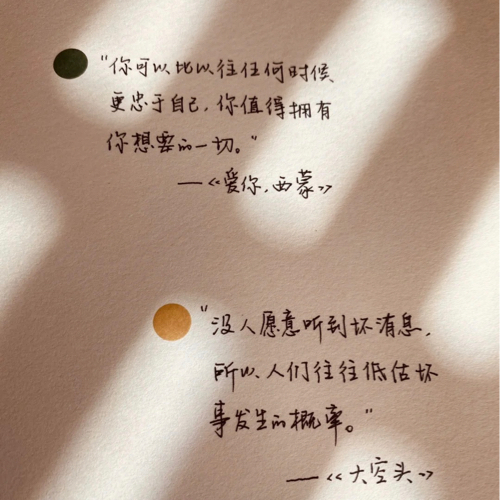 "你可以比以往任何时候
更忠于自己，你值得拥有
你想要的一切。"
——《爱你，西蒙》
"没人愿意听到坏消息，
所以、人们往往低估坏
事发生的概率。"
——《大空头》